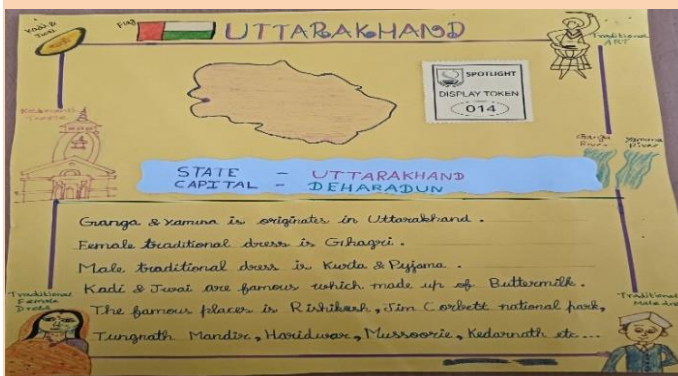 Kadi & Jwai
Flag
UTTARAKHAND
Traditional ART
SPOTLIGHT
DISPLAY TOKEN
014
Kedarnath Temple
Ganga River
Yamuna River
STATE - UTTARAKHAND
CAPITAL - DEHARADUN
Ganga & Yamuna is originates in Uttarakhand.
Female traditional dress is Ghagri.
Male traditional dress is Kurta & Pyjama.
Kadi & Jwai are famous which made up of Buttermilk.
The famous places is Rishikesh, Jim Corbett national park,
Tungnath Mandir, Haridwar, Mussoorie, Kedarnath etc...
Traditional Female Dress
Traditional Male